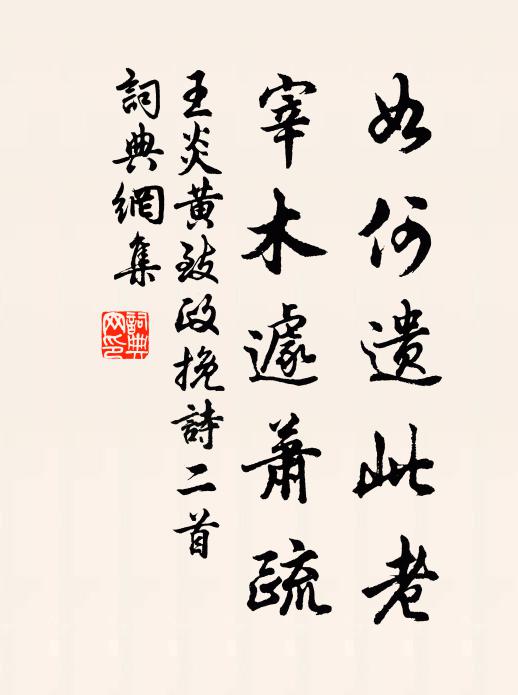 如何遺此老
宰木遽蕭疏
王炎黄致政挽詩二首
詞典網集
詞典網印